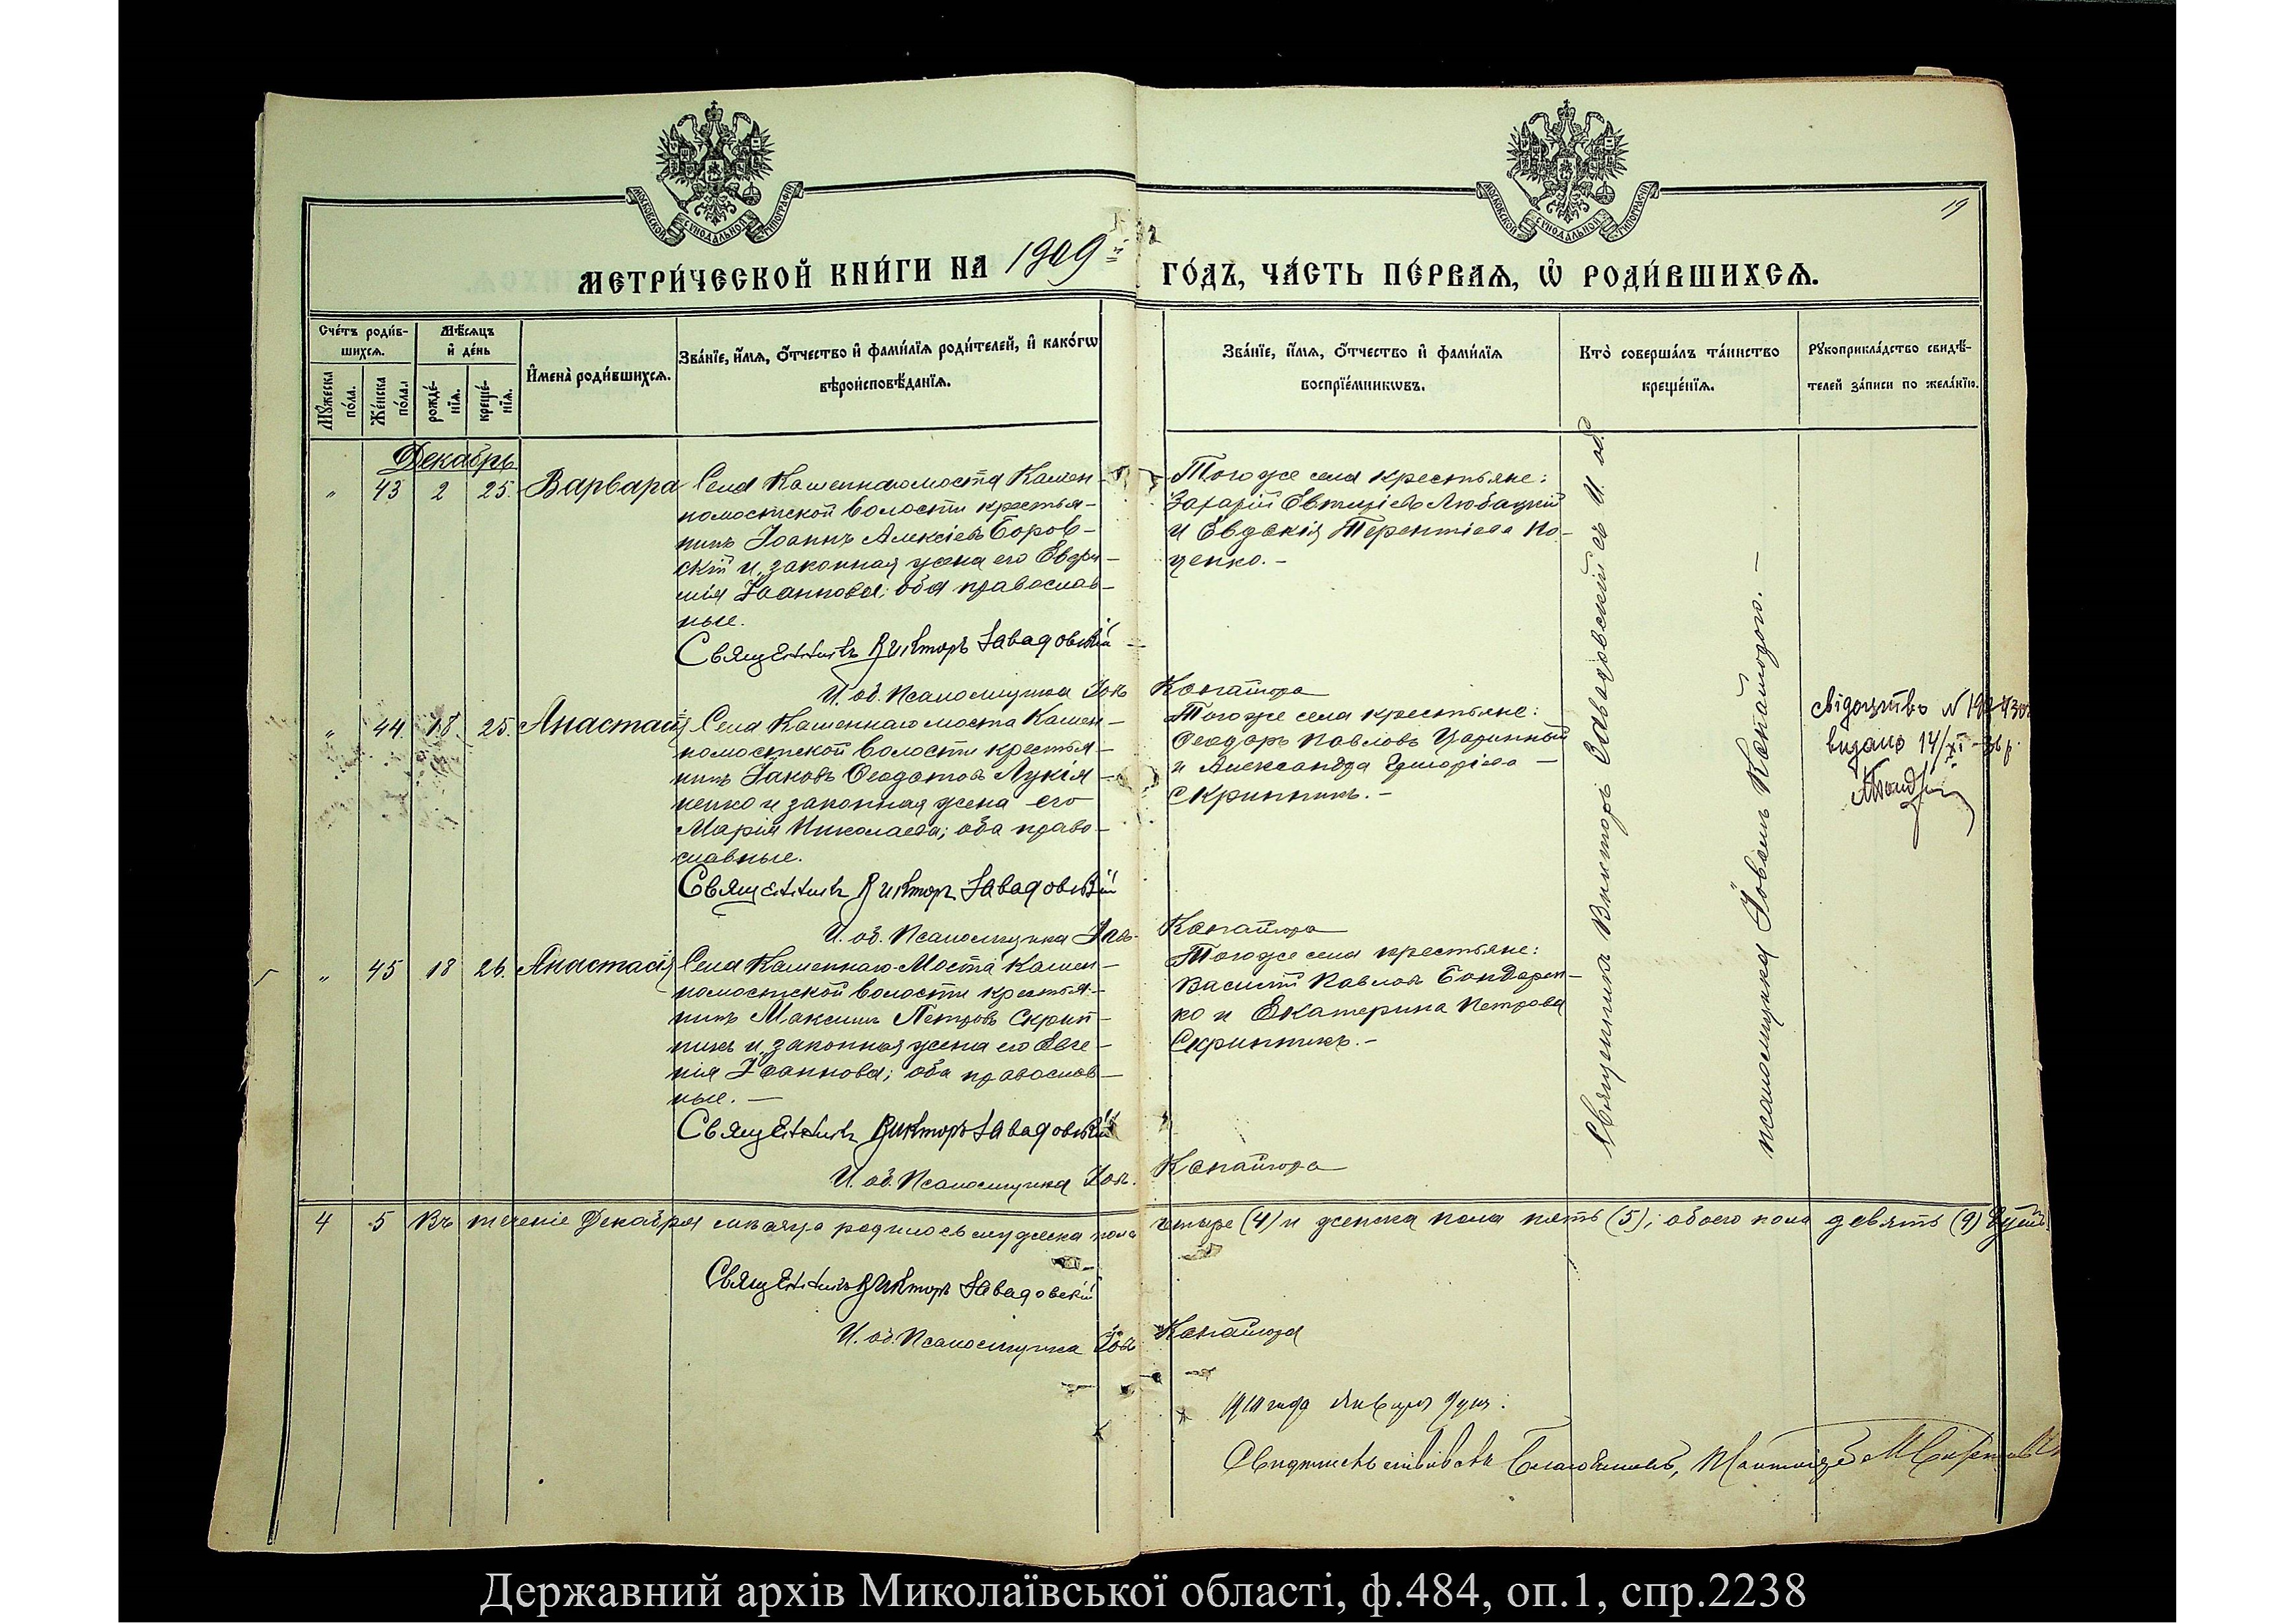 МОСКОВСКОЙ СѴНОДАЛЬНОЙ ТИПОГРАФІИ
МОСКОВСКОЙ СѴНОДАЛЬНОЙ ТИПОГРАФІИ
19
МЕТРИ́ЧЕСКОЙ КНИ́ГИ НА 1909 й
ГО́ДЪ, ЧА́СТЬ ПЕ́РВАѦ, Ѡ҆ РОДИ́ВШИХСѦ.
Сче́тъ роди́в-
шихсѧ.
Мꙋжеска
по́ла.
Же́нска
по́ла.
Мѣ́сѧцъ
и҆ де́нь
рожде́-
нїѧ.
креще́-
нїѧ.
И҆мена̀ роди́вшихсѧ.
Зва́нїе, и҆́мѧ, ѻ҆́тчество и҆ фами́лїѧ роди́телей, и҆ како́гѡ
вѣроисповѣ́данїѧ.
Зва́нїе, и҆́мѧ, ѻ҆́тчество и҆ фами́лїѧ
воспрїе́мникѡвъ.
Кто̀ соверша́лъ та́инство
креще́нїѧ.
Рꙋкоприкла́дство свидѣ́-
телей за́писи по жела́нїю.
Декабрь
" 43 2 25 Варвара
Села Каменнаго моста Камен-
номостской волости крестья-
нинъ Іоаннъ Алексіевъ Боров-
скій и законная жена его
Іоаннова; оба православ-
ные.
Священникъ Викторъ Завадовскій
И. об. Псаломщика Іовъ Конашора
Того же села крестьяне:
Захарій Евтихіевъ Любацкій
и Евдокія Терентіева По-
ценко. -
" 44 18 25 Анастасія
Села Каменнаго моста Камен-
номостской волости крестья-
нинъ Іаковъ Ѳеодотовъ Лукія-
ненко и законная жена его
Марія Николаева; оба право-
славные.
Священникъ Викторъ Завадовскій
И. об. Псаломщика Іовъ Конашора
Того же села крестьяне:
Ѳеодоръ Павловъ Царинный
и Александра Григоріева
Скрипникъ. -
свідоцтво N
видано 14/XI - 36 р.
" 45 18 26 Анастасія
Села Каменнаго Моста Камен-
номостской волости крестья-
нинъ Максимъ Петровъ Скрип-
никъ и законная жена его Евге-
нія Іоаннова; оба православ-
ные. -
Священникъ Викторъ Завадовскій
И. об. Псаломщика Іовъ Конашора
Того же села крестьяне:
Василій Павловъ Бондарен-
ко и Екатерина Петрова
Скрипникъ. -
Священникъ Викторъ Завадовскій съ И. об.
псаломщика Іовомъ Конашорою. -
4 5 Въ теченіе Декабря мѣсяца родилось мужеска пола четыре (4) и женска пола пять (5); обоего пола девять (9) душъ.
Священникъ Викторъ Завадовскій
И. об. Псаломщика Іовъ Конашора
1910 года Января 9 дня:
Свидетельствовалъ Благочинный,
Державний архів Миколаївської області, ф.484, оп.1, спр.2238